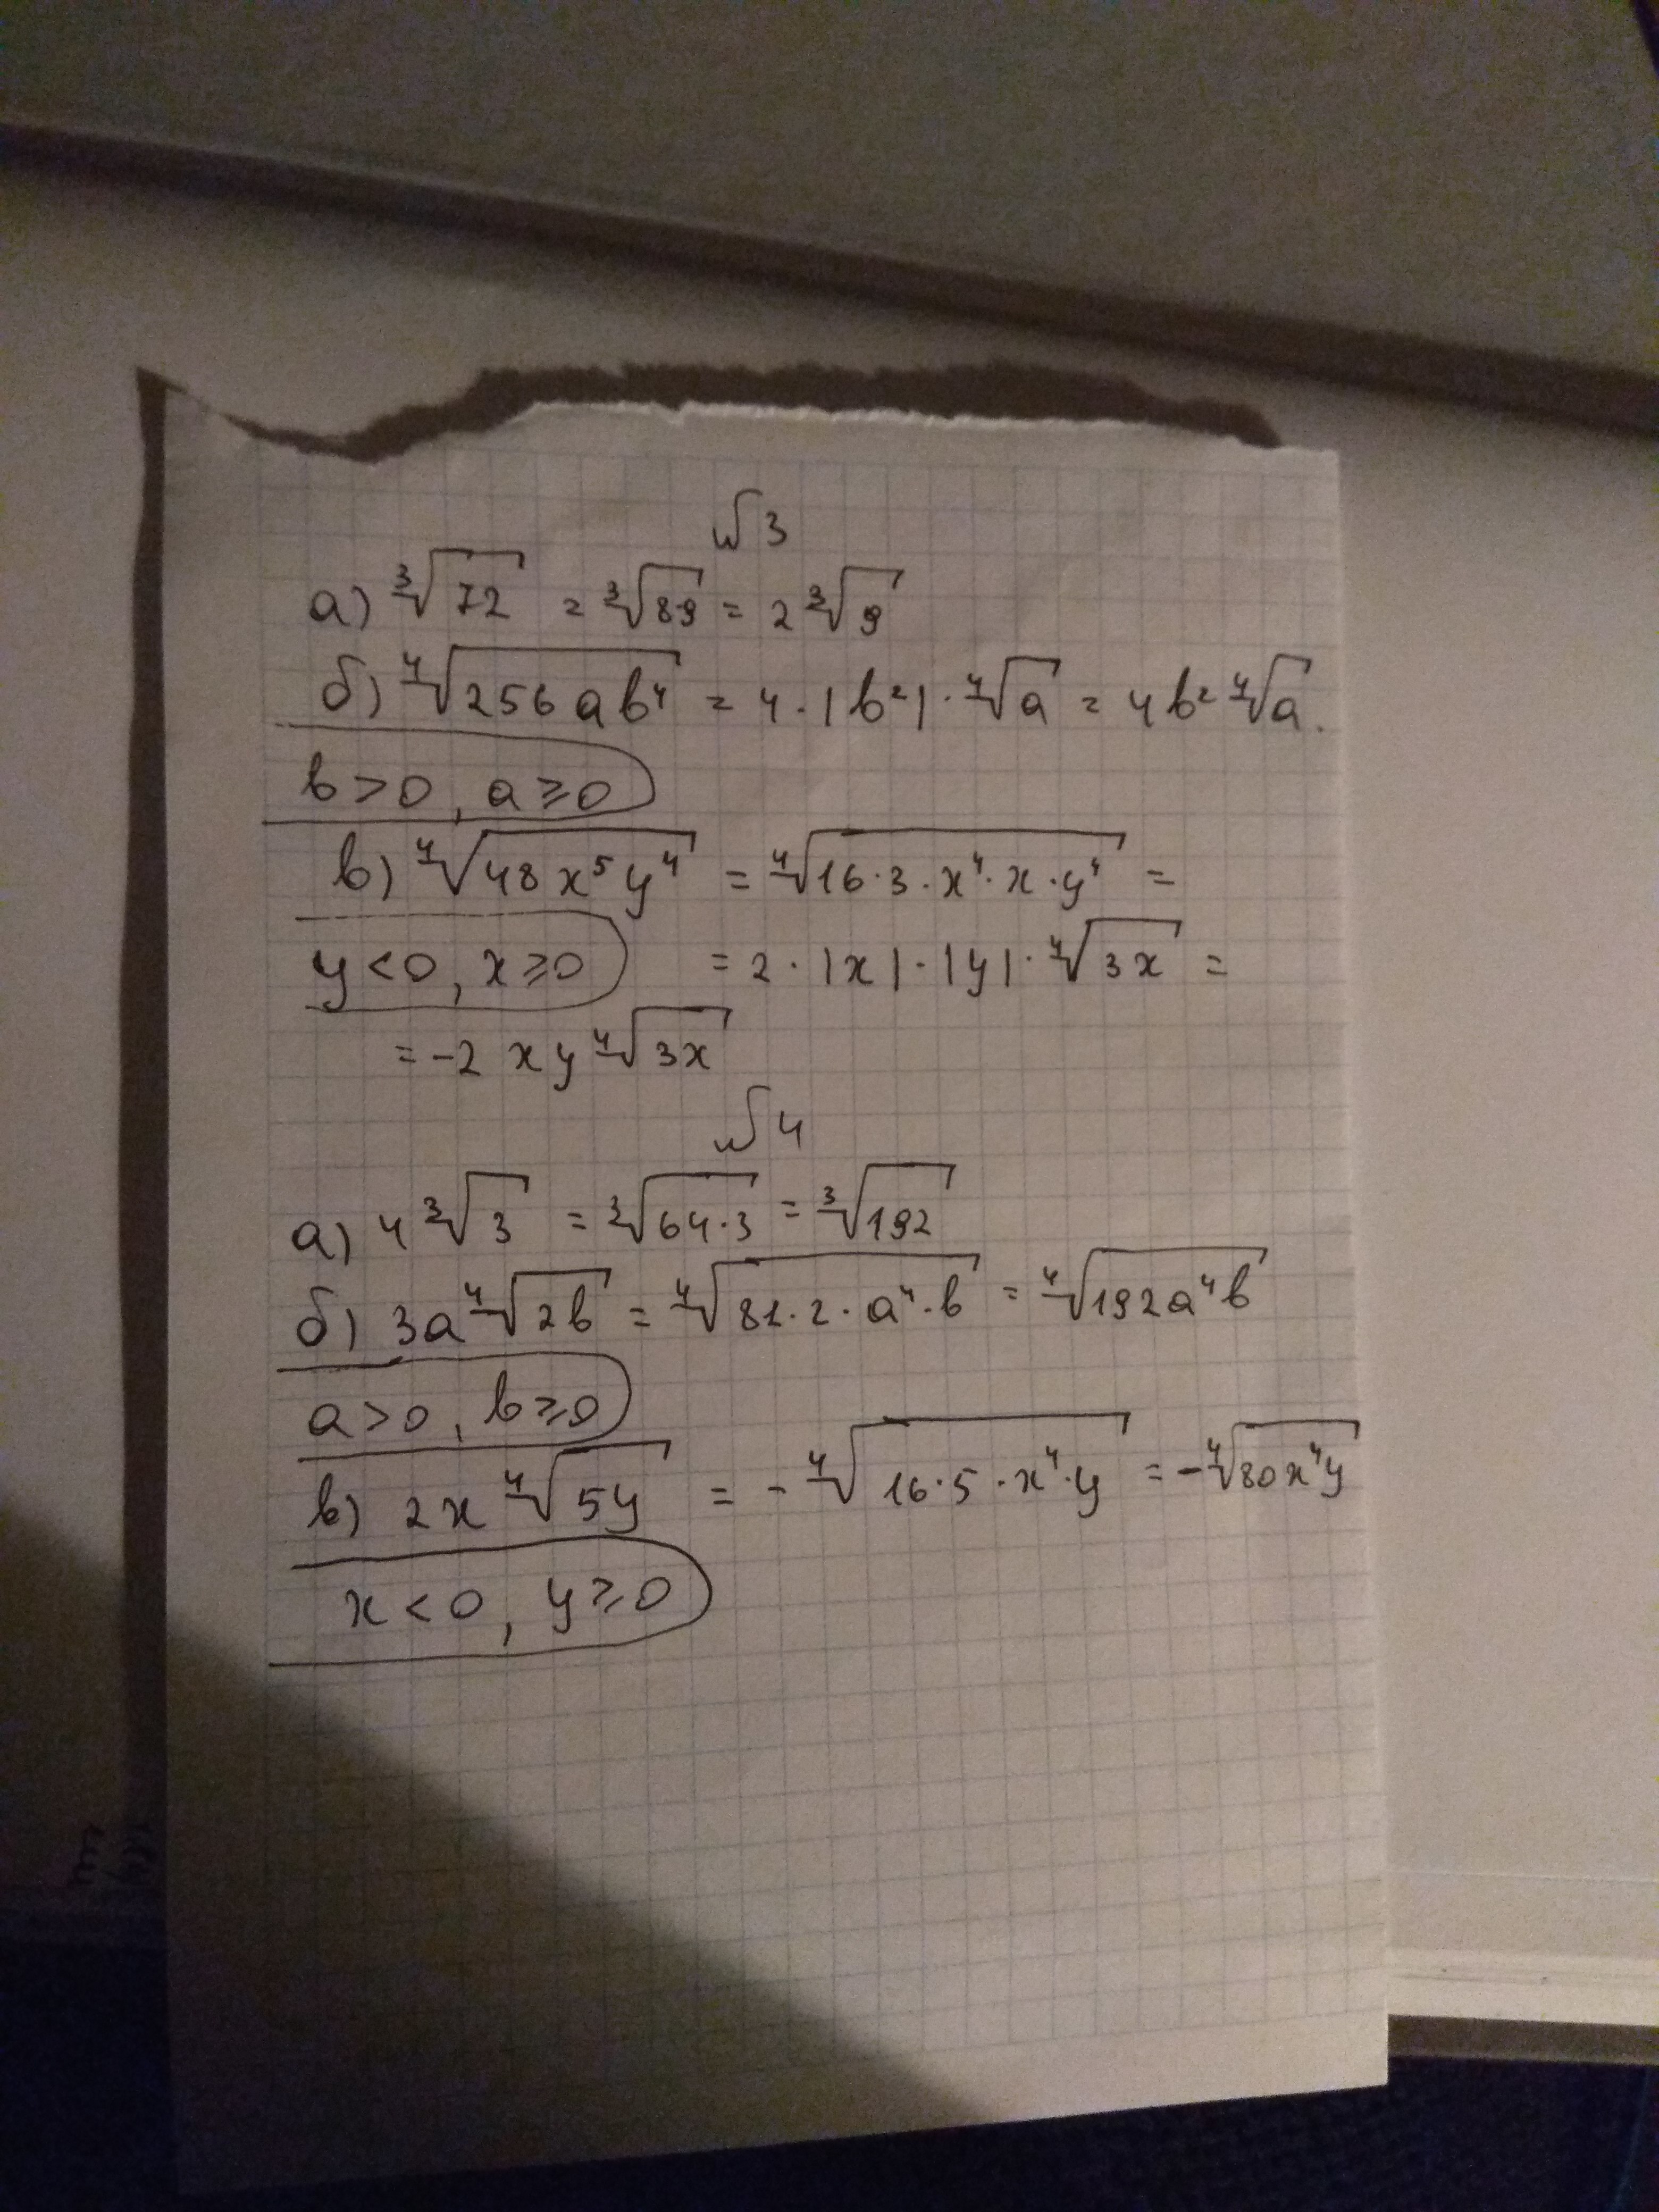 №3
а) ∛72 = ∛8·9 = 2 ∛9
б) ∜256ab⁴ = 4·|b²|·∜a = 4b² ∜a.
b>0, a⩾0
в) ∜48x⁵y⁴ = ∜16·3·x⁴·x·y⁴ =
y<0, x⩾0 = 2·|x|·|y|·∜3x =
= -2 xy ∜3x
№4
а) 4 ∛3 = ∛64·3 = ∛192
б) 3a ∜2b = ∜81·2·a⁴·b = ∜192a⁴b
a>0, b⩾0
в) 2x ∜5y = - ∜16·5·x⁴·y = - ∜80x⁴y
x<0, y⩾0